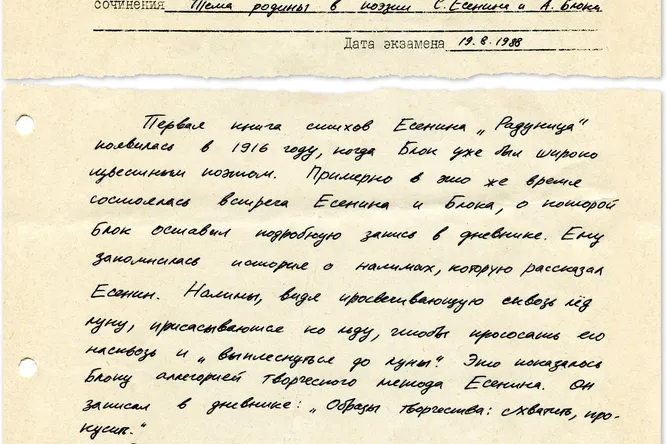 сочинения Тема родины в поэзии С. Есенина и А. Блока
Дата экзамена 19.8.1988
Первая книга стихов Есенина „Радуница“
появилась в 1916 году, когда Блок уже был широко
известным поэтом. Примерно в это же время
состоялась встреча Есенина и Блока, о которой
Блок оставил подробную запись в дневнике. Ему
запомнилась история о налимах, которую рассказал
Есенин. Налимы, видя просвечивающую сквозь лёд
луну, присасываются ко льду, чтобы прососать его
насквозь и „выплеснуться до луны“. Это показалось
Блоку аллегорией творческого метода Есенина. Он
записал в дневнике: „Образы творчества: схватить, про-
кусить.“